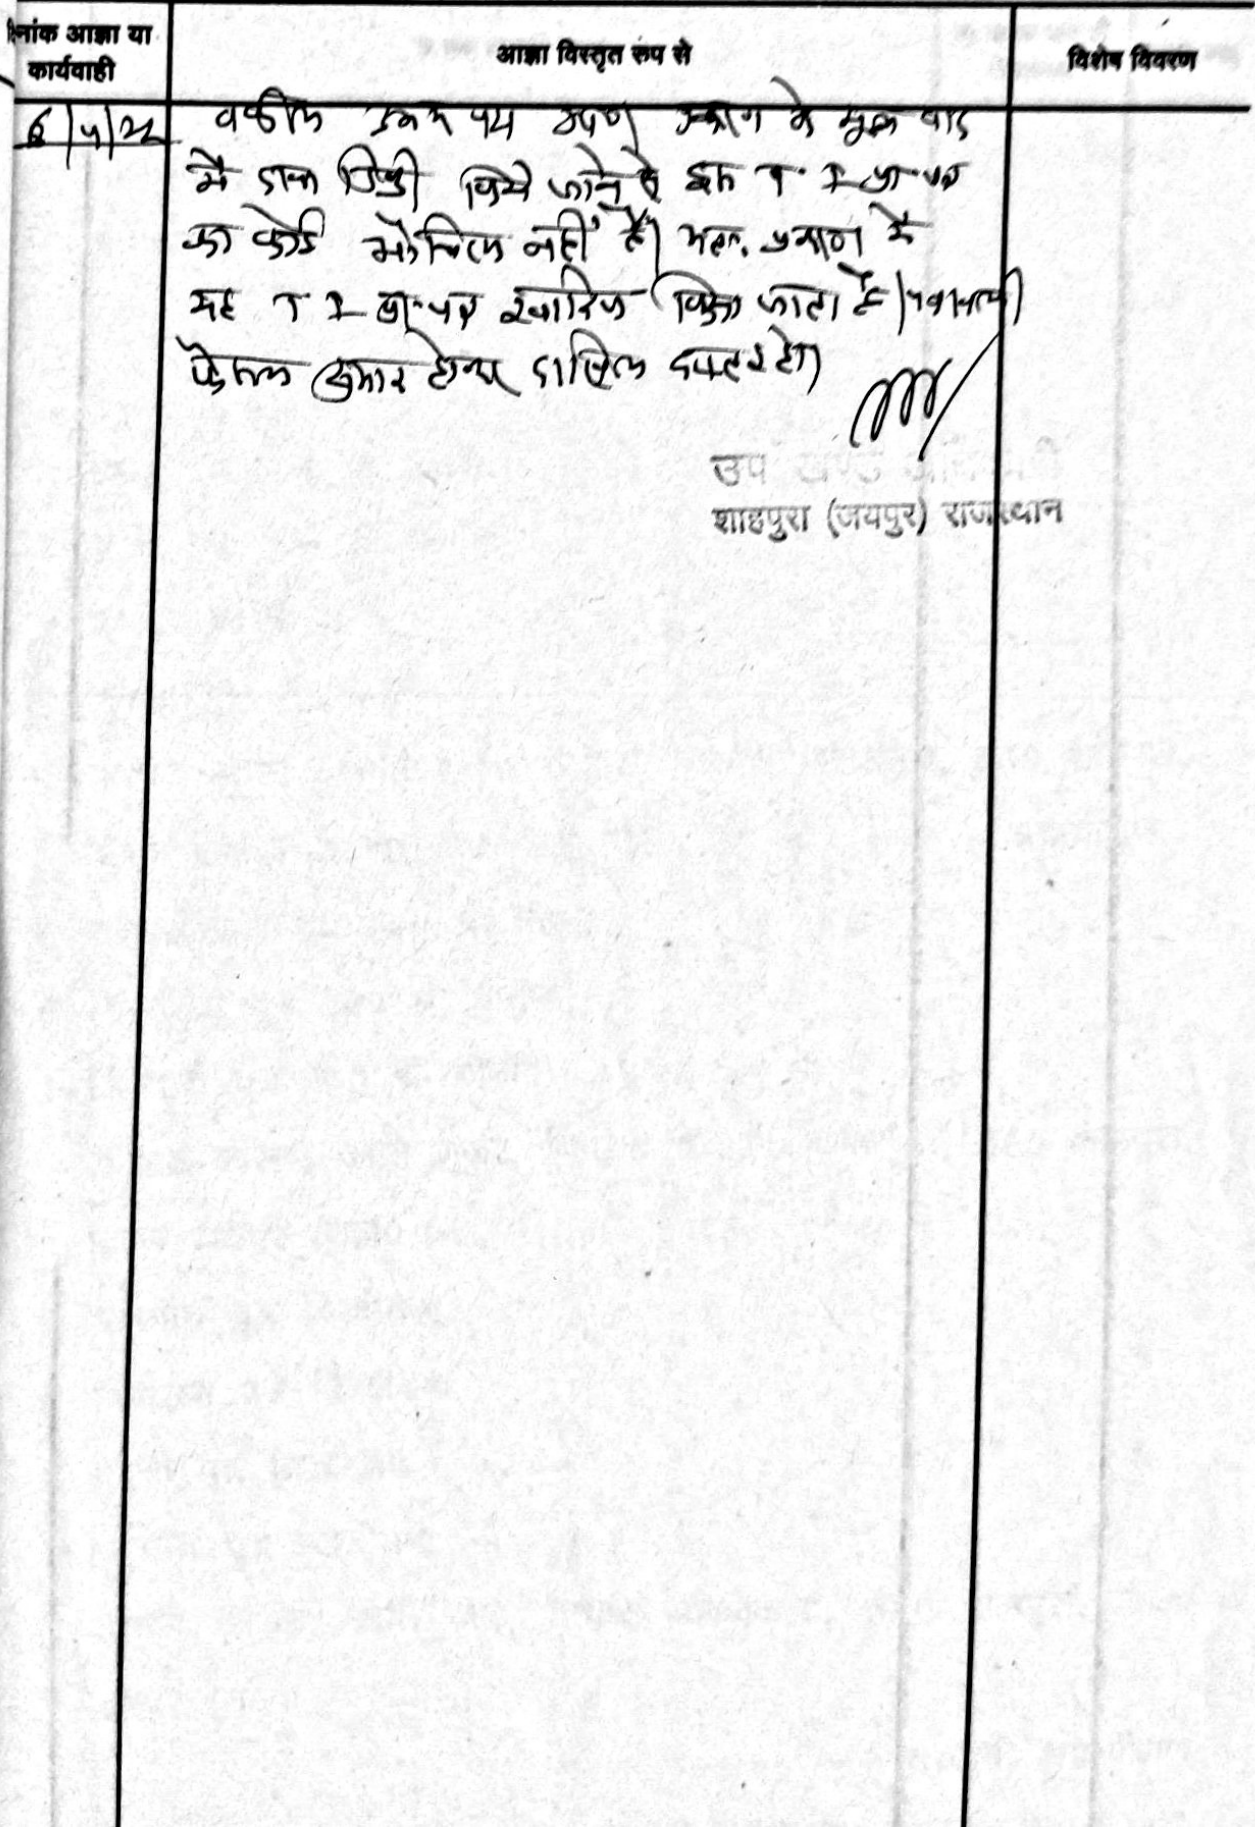 दिनांक आज्ञा या
कार्यवाही
आज्ञा विस्तृत रूप से
विशेष विवरण
वकील उभय पक्ष उप० प्रकरण के मूल वाद
में डिक्री किये जाने से इस T I प्रा पत्र
का कोई औचित्य नहीं है। अतः प्रकरण में
यह T I प्रा पत्र खारिज किया जाता है। पत्रावली
फैसल शुमार होकर दाखिल दफ्तर हो।
उप खण्ड
शाहपुरा (जयपुर) राजस्थान